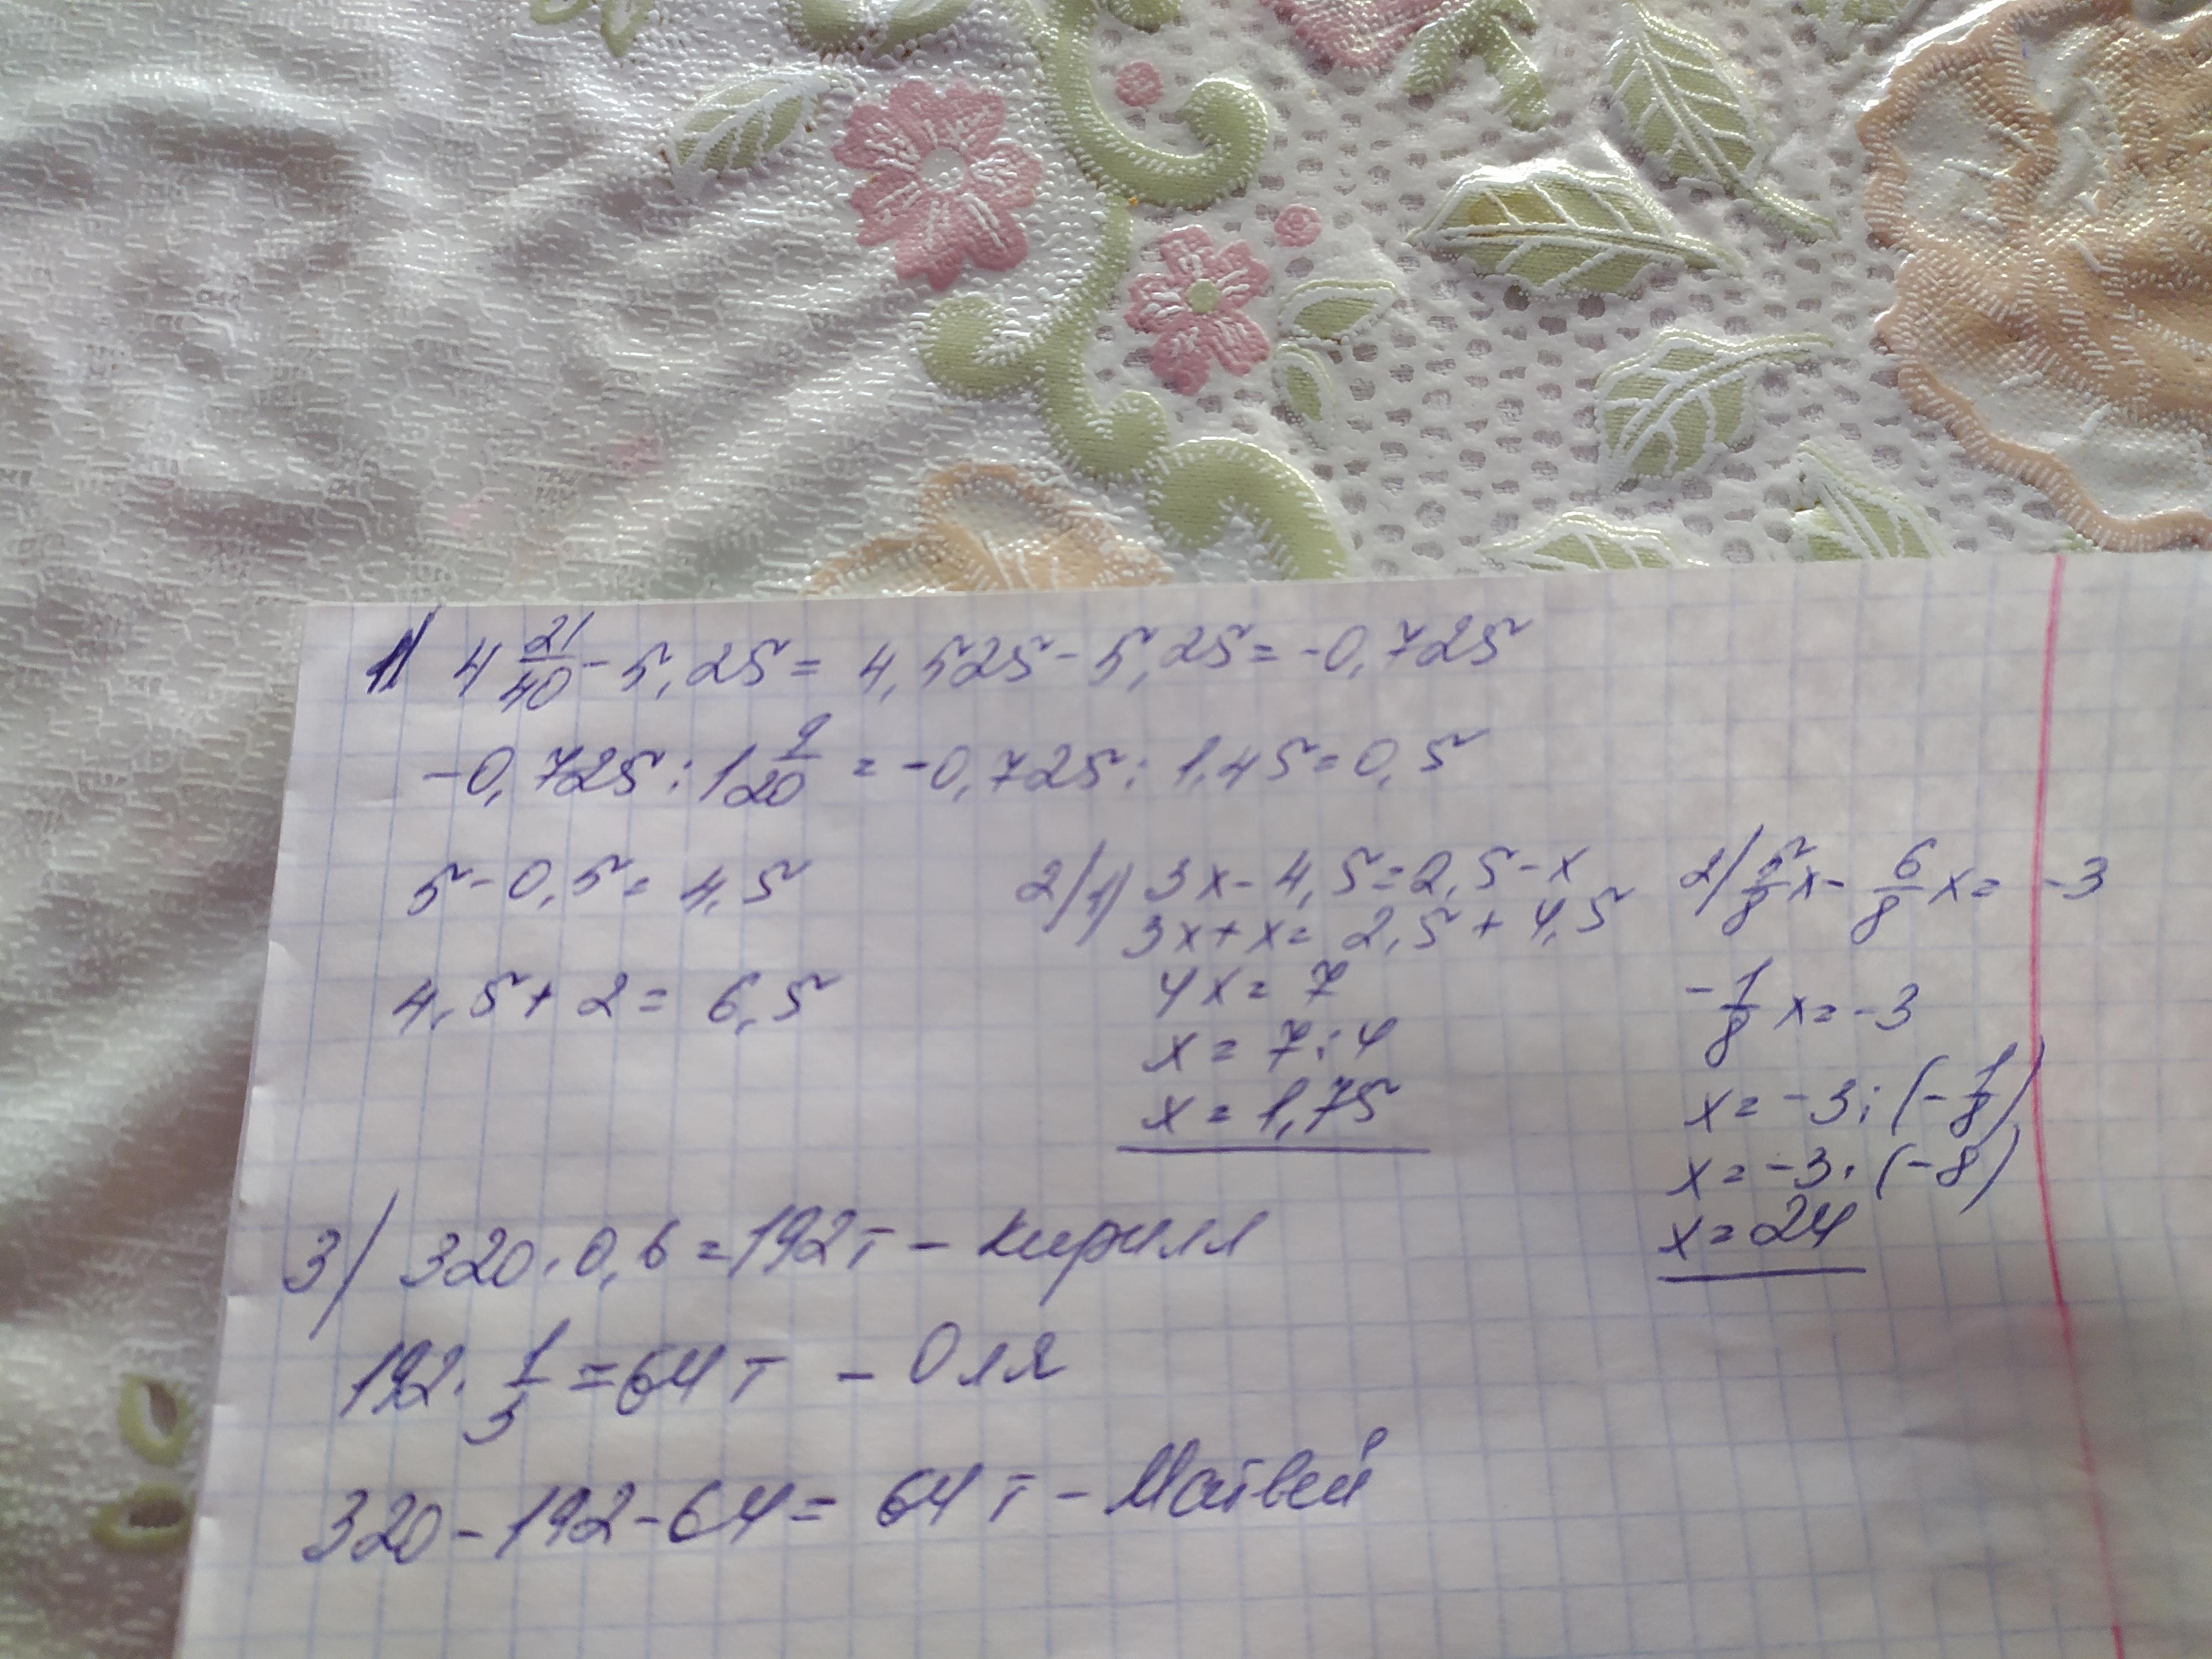 1) 4 21/40 - 5,25 = 4,525 - 5,25 = -0,725
-0,725 : 1 9/20 = -0,725 : 1,45 = 0,5
5 - 0,5 = 4,5
4,5 + 2 = 6,5
2) 1) 3x - 4,5 = 2,5 - x
3x + x = 2,5 + 4,5
4x = 7
x = 7 : 4
x = 1,75
2) 5/8 x - 6/8 x = -3
-1/8 x = -3
x = -3 : (-1/8)
x = -3 · (-8)
x = 24
3) 320 · 0,6 = 192 т - Кирилл
192 · 1/3 = 64 т - Оля
320 - 192 - 64 = 64 т - Матвей